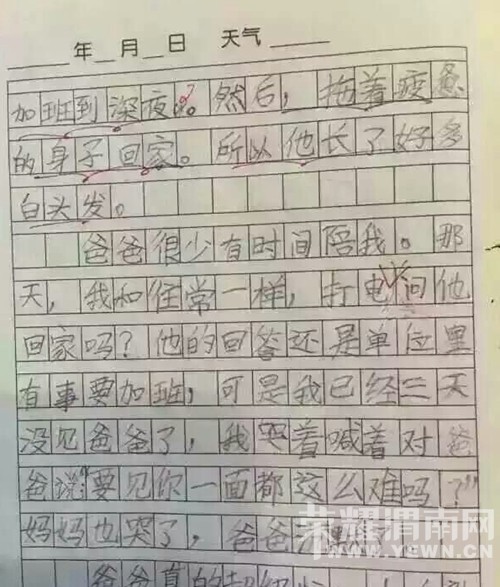 年 月 日 天气
加班到深夜。然后，拖着疲惫
的身子回家。所以他长了好多
白头发。
爸爸很少有时间陪我。那
天，我和往常一样，打电问他
回家吗？他的回答还是单位里
有事要加班，可是我已经三天
没见爸爸了，我哭着喊着对爸
爸说："要见你一面都这么难吗？"
妈妈也哭了，爸爸
爸爸真的
荣耀渭南网
YEWN.CN